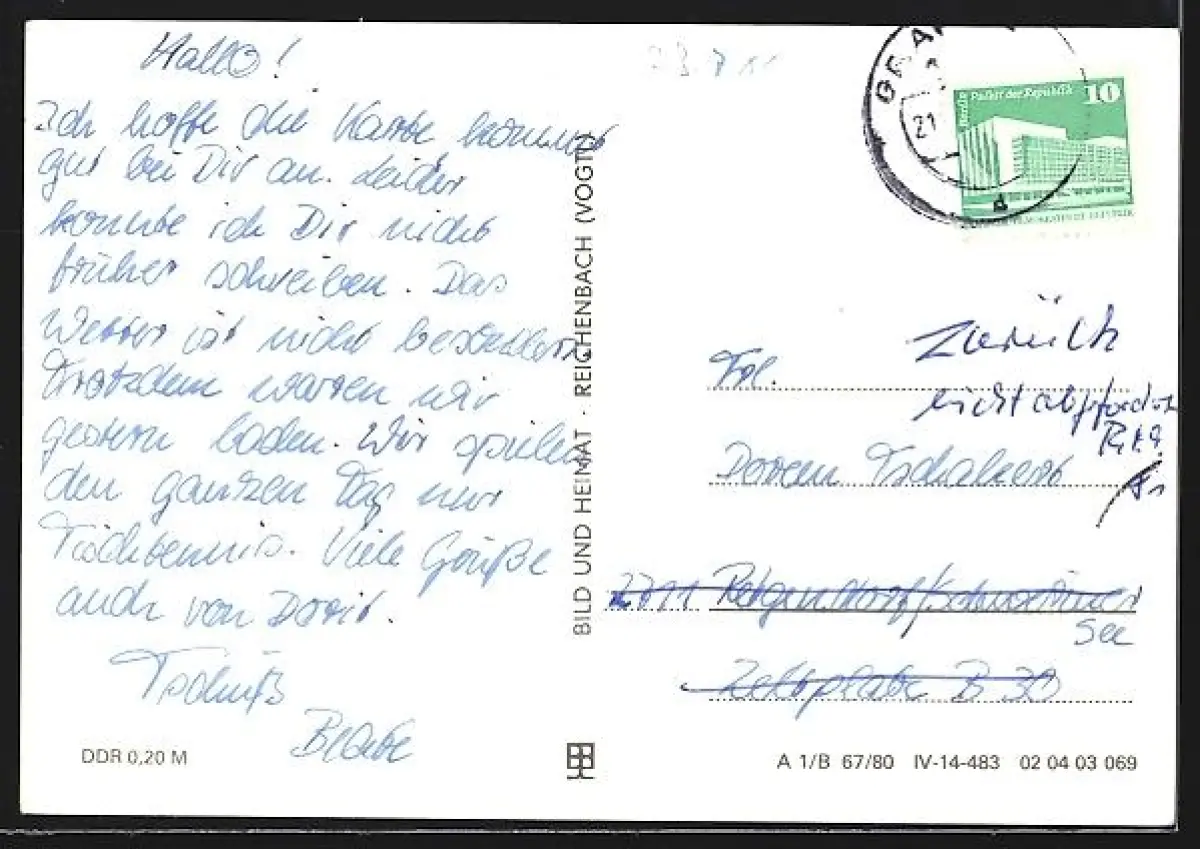 Hallo!
Ich hoffe die Karte kommt
gut bei Dir an. Leider
konnte ich Dir nicht
früher schreiben. Das
Wetter ist nicht besonders
Trotzdem waren wir
gestern baden. Wir spielen
den ganzen Tag nur
Tischtennis. Viele Grüße
auch von Dorit.
Tschüß
Beate
DDR 0,20 M
BILD UND HEIMAT · REICHENBACH (VOGTL)
21.
Berlin Palast der Republik 10
Zurück
nicht abgefordert
Frl.
Doreen Tschakert
2711 Retgendorf/Schweriner
See
Zeltplatz B 30
A 1/B 67/80 IV-14-483 02 04 03 069